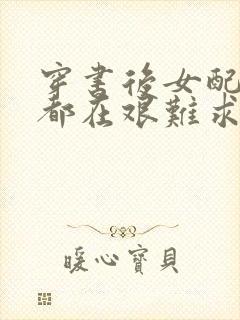 穿書後女配
都在艱難求
暖心寶貝